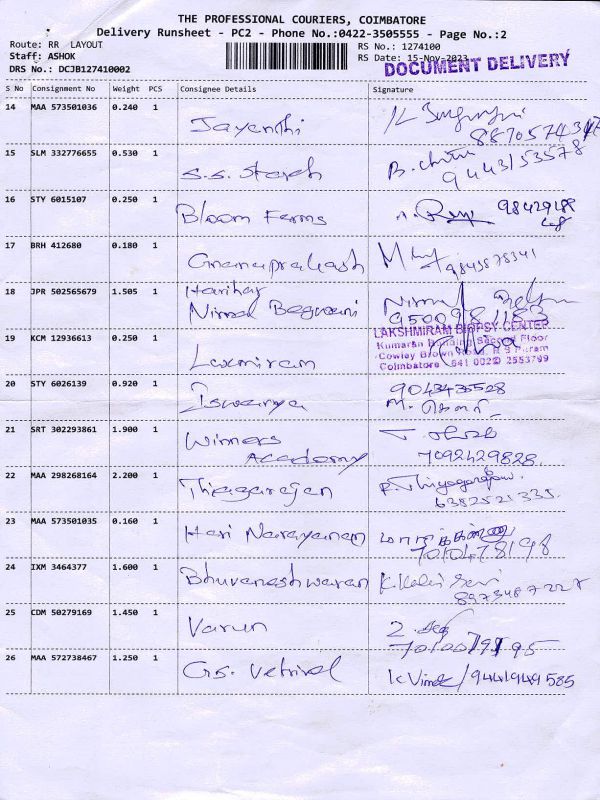 THE PROFESSIONAL COURIERS, COIMBATORE
Delivery Runsheet - PC2 - Phone No.:0422-3505555 - Page No.:2
Route: RR LAYOUT
RS No.: 1274100
Staff: ASHOK
RS Date: 15-Nov-2023
DRS No.: DCJB127410002
DOCUMENT DELIVERY
S No Consignment No Weight PCS Consignee Details Signature
14 MAA 573501036 0.240 1
Jayanthi
8870574347
15 SLM 332776655 0.530 1
S.S. Starch
9443153578
16 STY 6015107 0.250 1
Bloom Farms
17 BRH 412680 0.180 1
Gnanaprakash
18 JPR 502565679 1.505 1
Harihar
Nirmal
19 KCM 12936613 0.250 1
Laxmiram
LAKSHMIRAM BIOPSY CENTER
Kumaran Building Second Floor
Cowley Brown Road, R S Puram
Coimbatore 641 002
20 STY 6026139 0.920 1
Iswarya
9043435528
21 SRT 302293861 1.900 1
Winners
Academy
7092429828
22 MAA 298268164 2.200 1
Thiagarajan
R. Thiyagarajan
6382521335
23 MAA 573501035 0.160 1
Hari Narayanan
7010478198
24 IXM 3464377 1.600 1
Bhuvaneshwaran
25 CDM 50279169 1.450 1
Varun
26 MAA 572738467 1.250 1
G.S. Vetrivel
9441949585